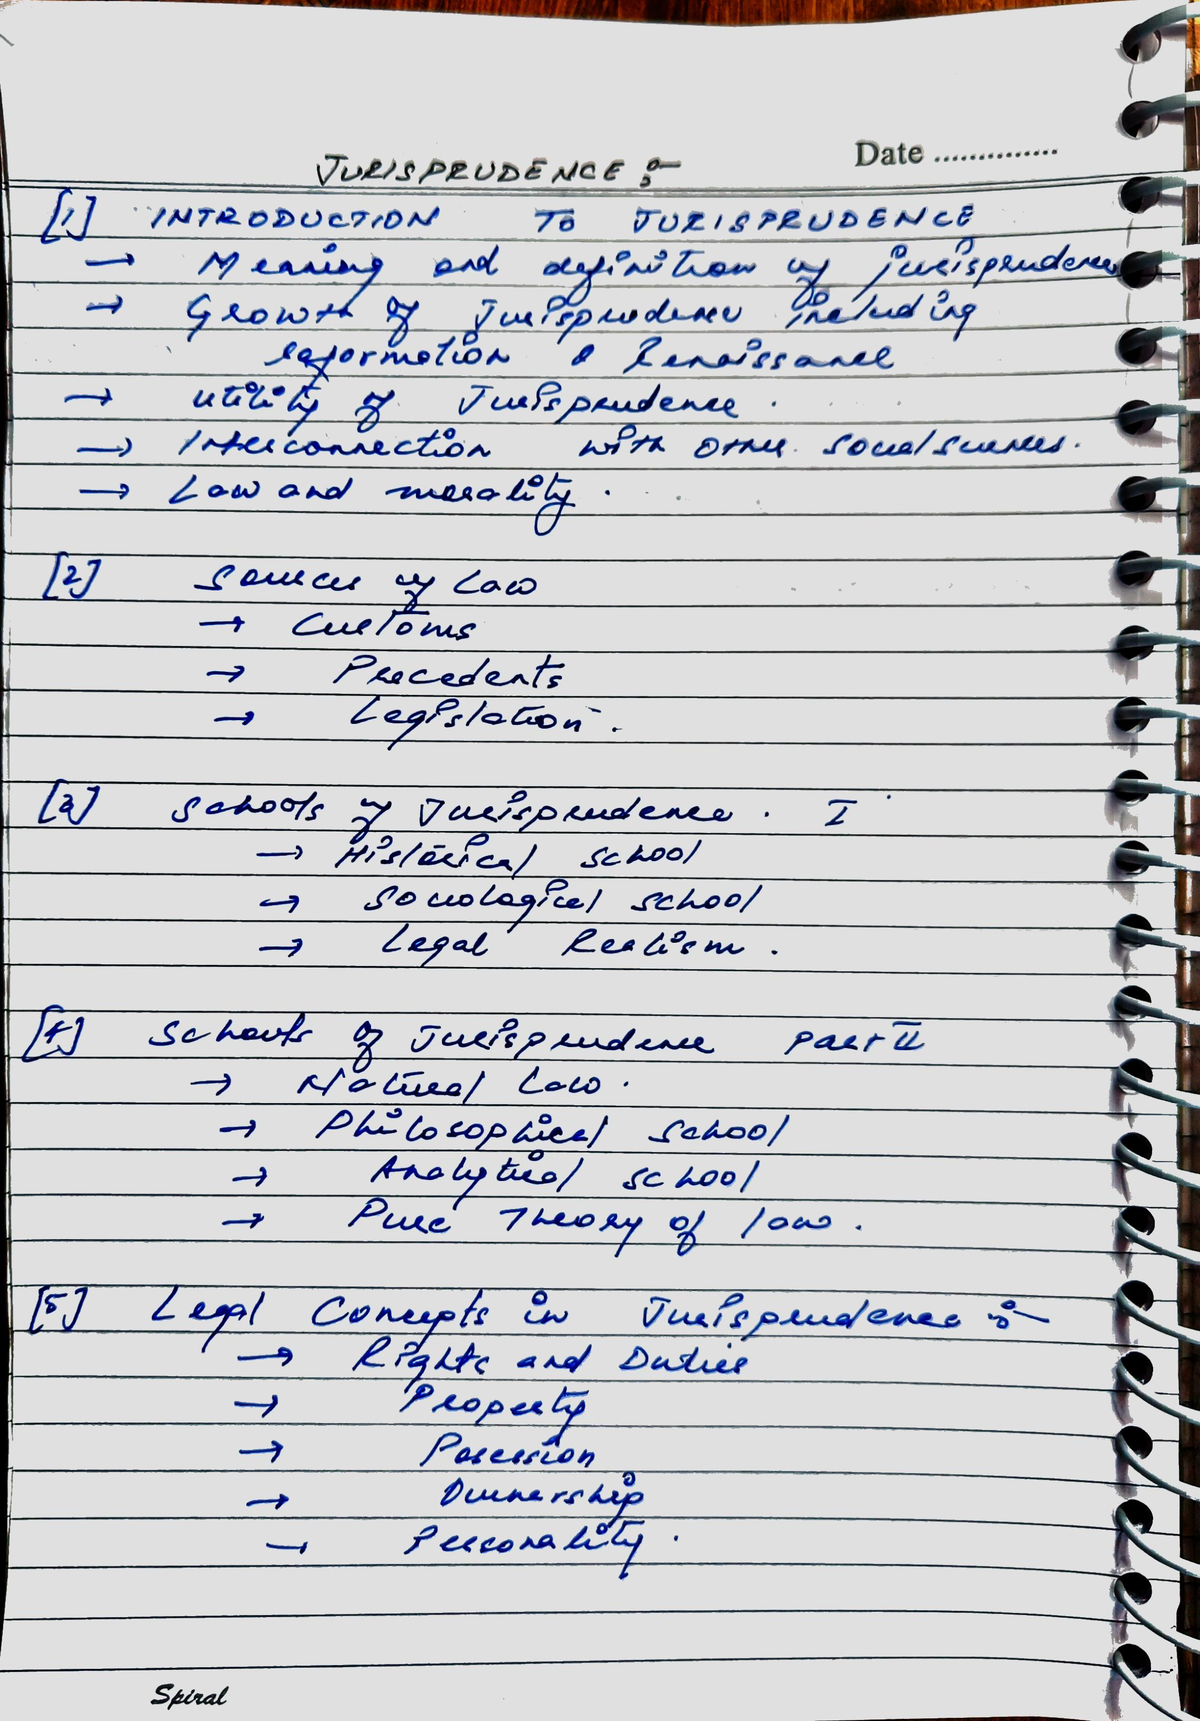 Date ..............
JURISPRUDENCE :-
[1] INTRODUCTION TO JURISPRUDENCE
→ Meaning and definition of jurisprudence
→ Growth of Jurisprudence including
reformation & Renaissance
→ utility of Jurisprudence.
→ Interconnection with other social sciences.
→ Law and morality.
[2] Sources of Law
→ Customs
→ Precedents
→ Legislation.
[3] Schools of Jurisprudence. I
→ Historical school
→ Sociological school
→ Legal Realism.
[4] Schools of Jurisprudence Part II
→ Natural Law.
→ Philosophical school
→ Analytical school
→ Pure Theory of law.
[5] Legal Concepts in Jurisprudence :-
→ Rights and Duties
→ Property
→ Possession
→ Ownership
→ Personality.
Spiral